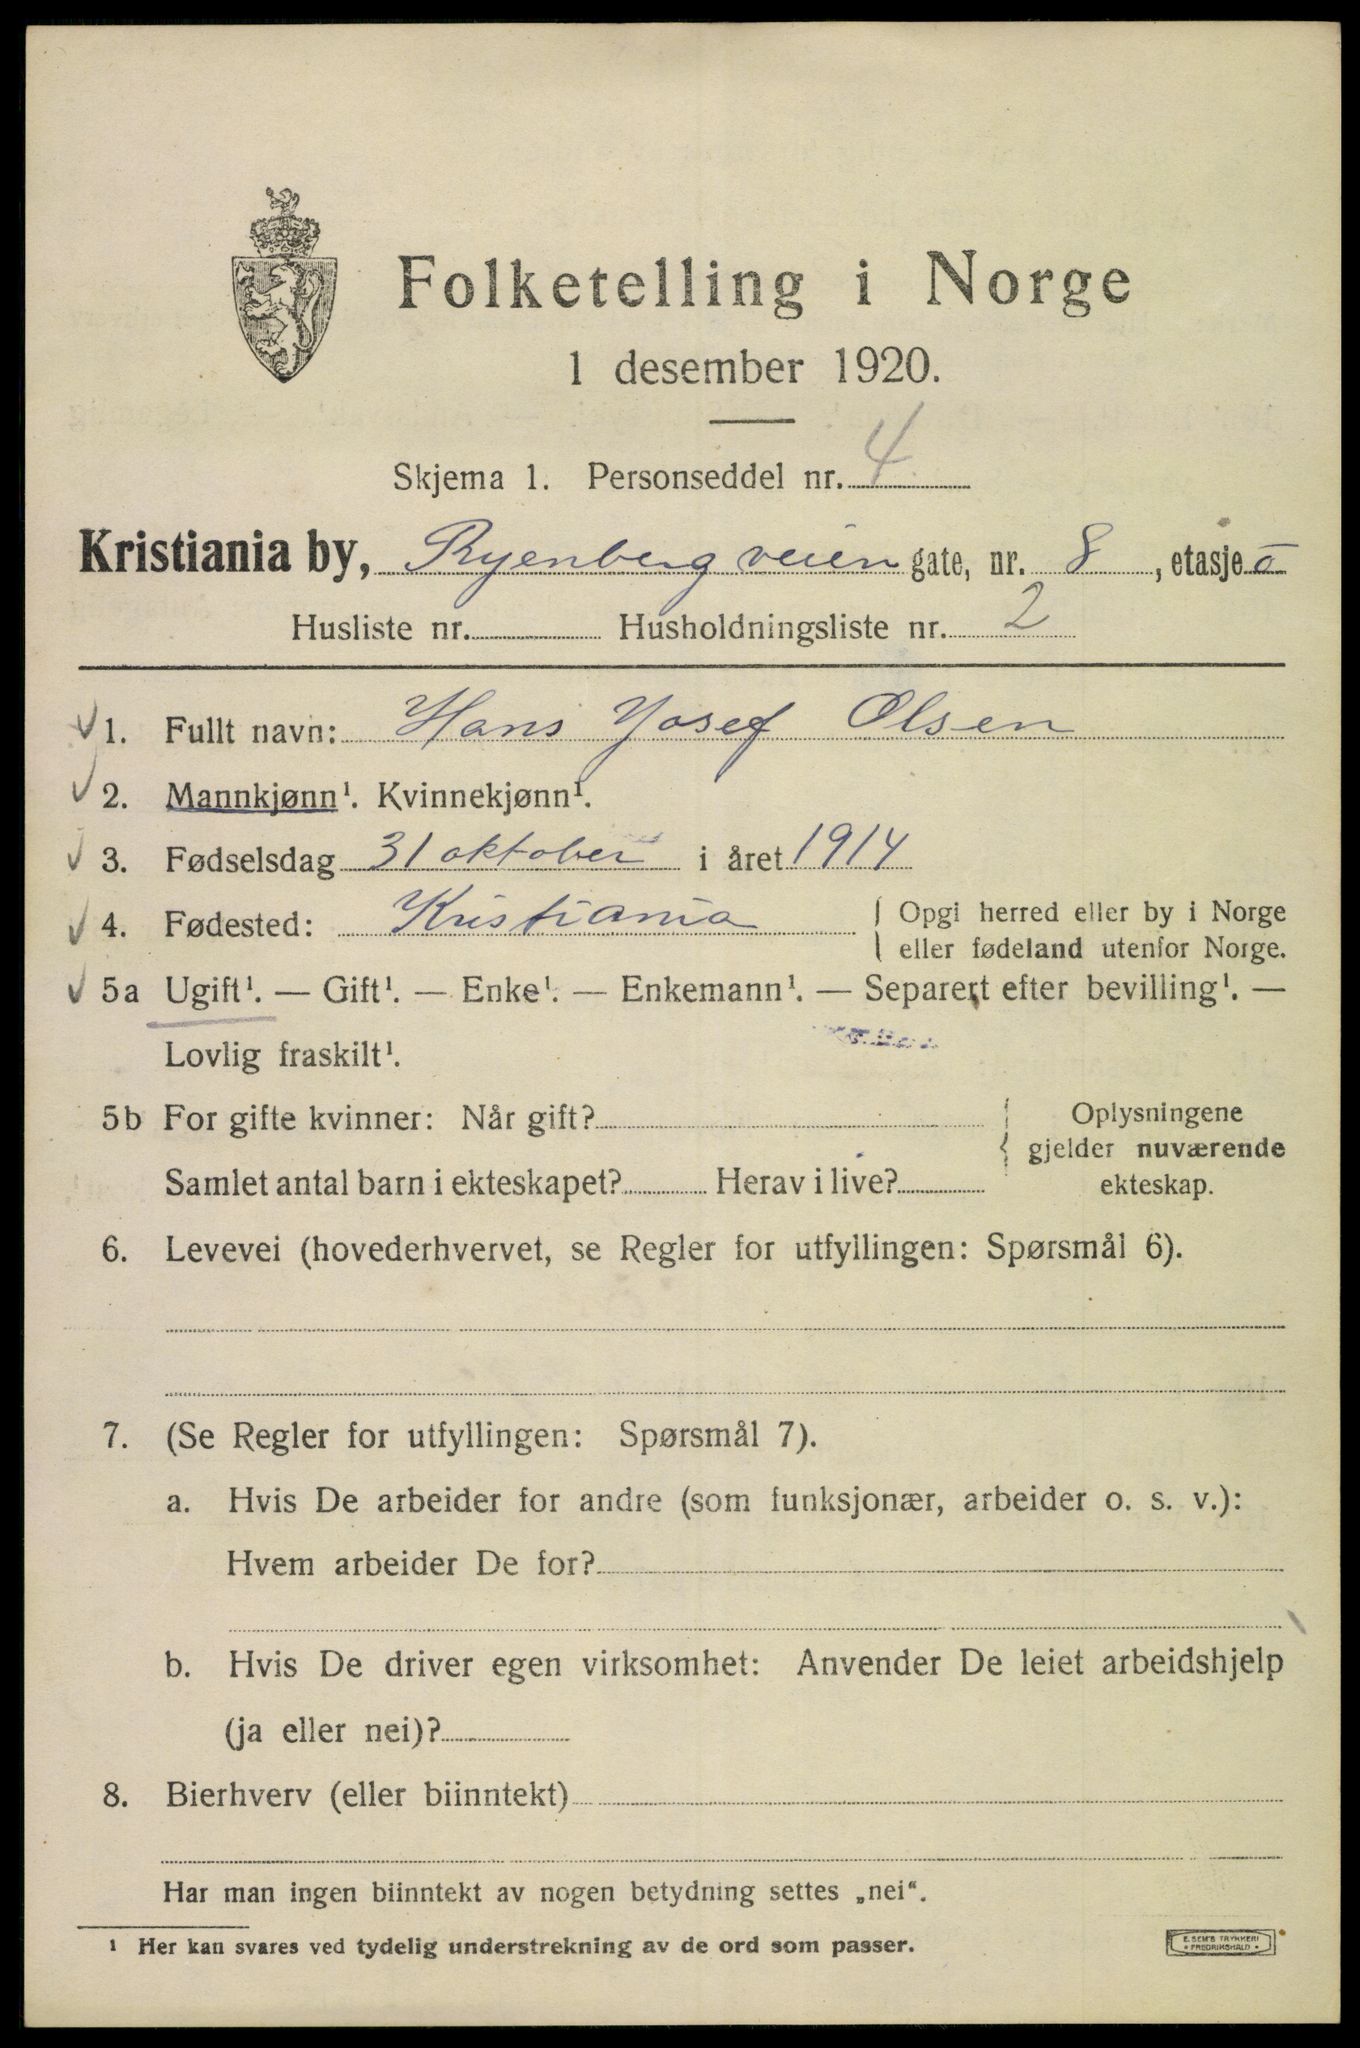 Folketelling i Norge
1 desember 1920.
Skjema 1. Personseddel nr. 4
Kristiania by, Ryenbergveien gate, nr. 8, etasje o
Husliste nr. Husholdningsliste nr. 2
1. Fullt navn: Hans Josef Olsen
2. Mannkjønn¹. Kvinnekjønn¹.
3. Fødselsdag 31 oktober i året 1914
4. Fødested: Kristiania { Opgi herred eller by i Norge
eller fødeland utenfor Norge.
5a Ugift¹. — Gift¹. — Enke¹. — Enkemann¹. — Separert efter bevilling¹. —
Lovlig fraskilt¹.
5b For gifte kvinner: Når gift? { Oplysningene
gjelder nuværende
Samlet antal barn i ekteskapet? Herav i live? ekteskap.
6. Levevei (hovederhvervet, se Regler for utfyllingen: Spørsmål 6).
7. (Se Regler for utfyllingen: Spørsmål 7).
a. Hvis De arbeider for andre (som funksjonær, arbeider o. s. v.):
Hvem arbeider De for?
b. Hvis De driver egen virksomhet: Anvender De leiet arbeidshjelp
(ja eller nei)?
8. Bierhverv (eller biinntekt)
Har man ingen biinntekt av nogen betydning settes „nei“.
¹ Her kan svares ved tydelig understrekning av de ord som passer.
E. SEM'S TRYKKERI
• FREDRIKSHALD •